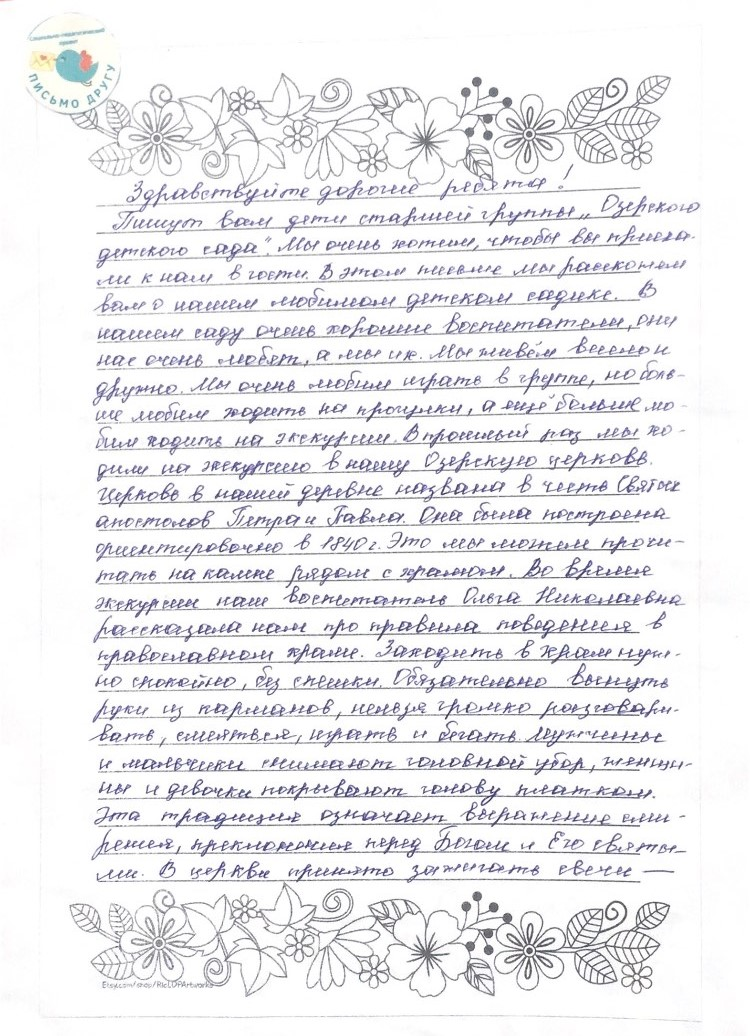 Социально-педагогический
проект
ПИСЬМО ДРУГУ
Здравствуйте дорогие ребята!
Пишут вам дети старшей группы „Озерского
детского сада". Мы очень хотим, чтобы вы приеха-
ли к нам в гости. В этом письме мы расскажем
вам о нашем любимом детском садике. В
нашем саду очень хорошие воспитатели, они
нас очень любят, а мы их. Мы живём весело и
дружно. Мы очень любим играть в группе, но боль-
ше любим ходить на прогулки, а ещё больше лю-
бим ходить на экскурсии. В прошлый раз мы хо-
дили на экскурсию в нашу Озерскую церковь.
Церковь в нашей деревне названа в честь Святых
апостолов Петра и Павла. Она была построена
ориентировочно в 1840 г. Это мы можем прочи-
тать на камне рядом с храмом. Во время
экскурсии наш воспитатель Ольга Николаевна
рассказала нам про правила поведения в
православном храме. Заходить в храм нуж-
но спокойно, без спешки. Обязательно вынуть
руки из карманов, нельзя громко разговари-
вать, смеяться, играть и бегать. Мужчины
и мальчики снимают головной убор, женщи-
ны и девочки покрывают голову платком.
Эта традиция означает выражение сми-
рения, преклонения перед Богом и Его святы-
ми. В церкви принято зажигать свечи —
Etsy.com/shop/RicLDPArtworks